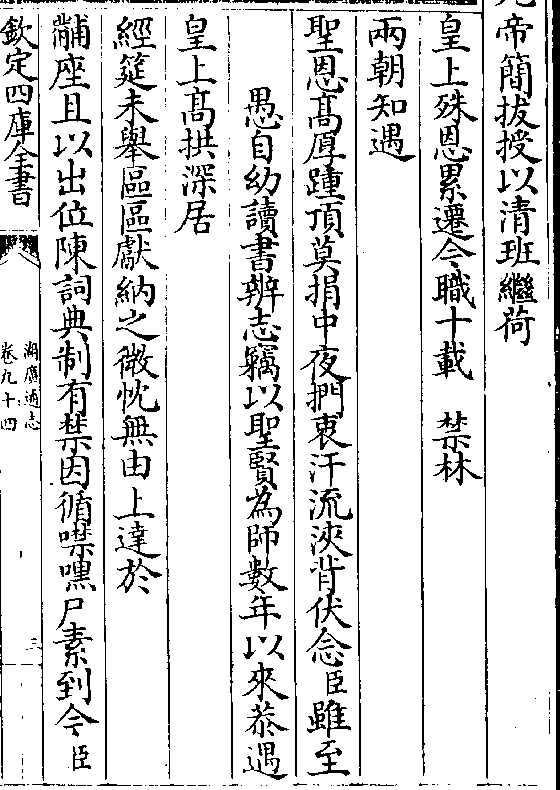 帝簡拔授以清班繼荷
皇上殊恩累遷今職十載　禁林
兩朝知遇
聖恩高厚踵頂莫捐中夜捫衷汗流浹背伏念臣雖至
愚自幼讀書辨志竊以聖賢為師數年以來恭遇
皇上髙拱深居
經筵未舉區區獻納之微忱無由上達於
黼座且以出位陳詞典制有禁因循噤嘿尸素到今臣
欽定四庫全書
湖廣通志
卷九十四
三